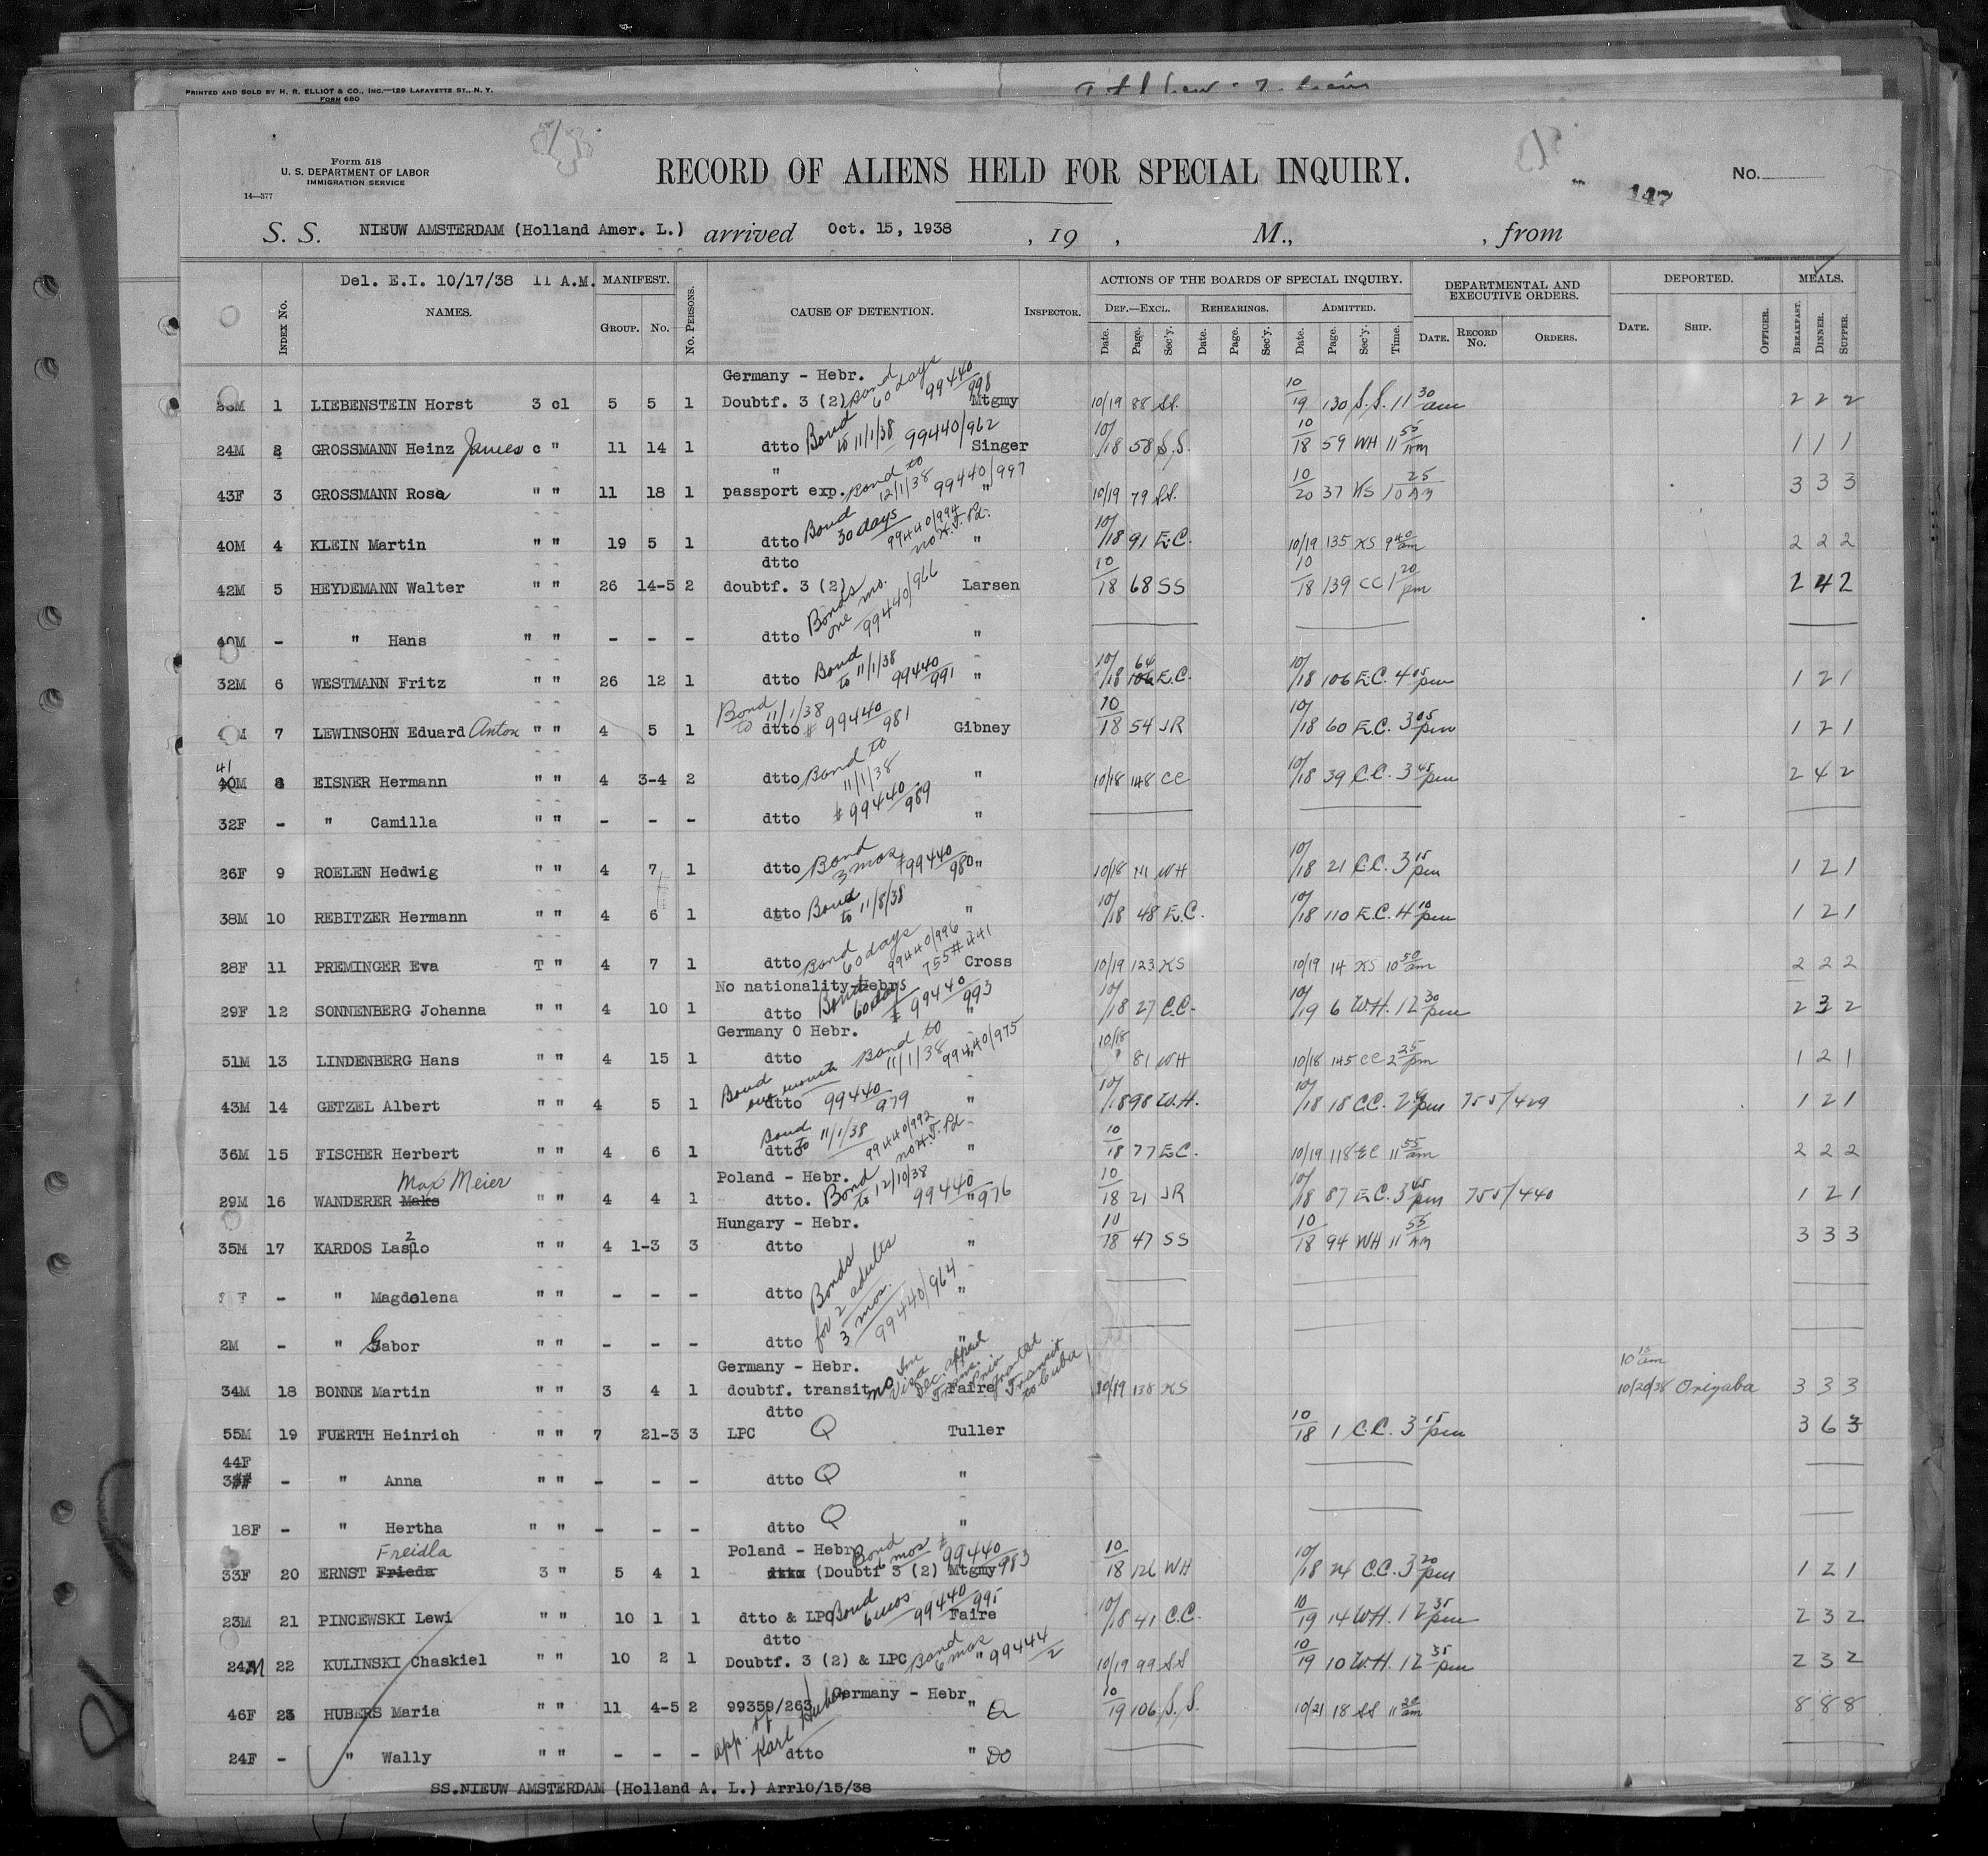 PRINTED AND SOLD BY H. R. ELLIOT & CO., INC.—129 LAFAYETTE ST., N. Y.
FORM 680
Form 518
U. S. DEPARTMENT OF LABOR
IMMIGRATION SERVICE
14—377
RECORD OF ALIENS HELD FOR SPECIAL INQUIRY.
No.
147
S. S. NIEUW AMSTERDAM (Holland Amer. L.) arrived Oct. 15, 1938 , 19 , M., , from
Del. E.I. 10/17/38 11 A.M.
INDEX No. NAMES. MANIFEST. GROUP. No. No. PERSONS. CAUSE OF DETENTION. INSPECTOR. ACTIONS OF THE BOARDS OF SPECIAL INQUIRY. DEPARTMENTAL AND EXECUTIVE ORDERS. DEPORTED. MEALS.
DEF.—EXCL. REHEARINGS. ADMITTED.
Date. Page. Sec'y. Date. Page. Sec'y. Date. Page. Sec'y. Time. DATE. RECORD No. ORDERS. DATE. SHIP. OFFICER. BREAKFAST. DINNER. SUPPER.
Germany - Hebr.
1 LIEBENSTEIN Horst 3 cl 5 5 1 Doubtf. 3 (2) Bond 60 days 99440/998 Mtgmy 10/19 88 SS. 10/19 130 S.S. 11 30 am 2 2 2
24M 2 GROSSMANN Heinz James c " 11 14 1 dtto Bond to 11/1/38 99440/962 Singer 10/18 58 S.S. 10/18 59 WH 11 55 AM 1 1 1
"
43F 3 GROSSMANN Rosa " " 11 18 1 passport exp. Bond to 12/1/38 99440/997 " 10/19 79 SS. 10/20 37 KS 10 25 AM 3 3 3
40M 4 KLEIN Martin " " 19 5 1 dtto Bond 30 days 99440/994 no H.T. Pd. " 10/18 91 E.C. 10/19 135 KS 9 40 am 2 2 2
dtto
42M 5 HEYDEMANN Walter " " 26 14-5 2 doubtf. 3 (2) Bonds one mo. 99440/966 Larsen 10/18 68 SS 10/18 139 CC 1 20 pm 2 4 2
40M - " Hans " " - - - dtto "
32M 6 WESTMANN Fritz " " 26 12 1 dtto Bond to 11/1/38 99440/991 " 10/18 64 106 E.C. 10/18 106 E.C. 4 05 pm 1 2 1
7 LEWINSOHN Eduard Anton " " 4 5 1 dtto Bond to 11/1/38 # 99440/981 Gibney 10/18 54 JR 10/18 60 E.C. 3 05 pm 1 2 1
41
40M 8 EISNER Hermann " " 4 3-4 2 dtto Bond to 11/1/38 # 99440/989 " 10/18 148 CC 10/18 39 C.C. 3 45 pm 2 4 2
32F - " Camilla " " - - - dtto "
26F 9 ROELEN Hedwig " " 4 7 1 dtto Bond 3 mos # 99440/980 " 10/18 141 WH 10/18 21 C.C. 3 15 pm 1 2 1
38M 10 REBITZER Hermann " " 4 6 1 dtto Bond to 11/8/38 " 10/18 48 E.C. 10/18 110 E.C. 4 10 pm 1 2 1
28F 11 PREMINGER Eva T " 4 7 1 dtto Bond 60 days 99440/996 755#441 Cross 10/19 123 KS 10/19 14 KS 10 50 am 2 2 2
No nationality-Hebr
29F 12 SONNENBERG Johanna " " 4 10 1 dtto Bond 60 days # 99440/993 " 10/18 27 C.C. 10/19 6 W.H. 12 30 pm 2 3 2
Germany O Hebr.
51M 13 LINDENBERG Hans " " 4 15 1 dtto Bond to 11/1/38 99440/975 " 10/18 81 WH 10/18 145 CC 2 25 pm 1 2 1
43M 14 GETZEL Albert " " 4 5 1 dtto Bond one month 99440/979 " 10/18 98 W.H. 10/18 18 C.C. 2 pm 755/429 1 2 1
36M 15 FISCHER Herbert " " 4 6 1 dtto Bond to 11/1/38 99440/992 no H.T. Pd " 10/18 77 E.C. 10/19 118 EC 11 55 am 2 2 2
Max Meier
Poland - Hebr.
29M 16 WANDERER Maks " " 4 4 1 dtto. Bond to 12/10/38 99440/976 " 10/18 21 JR 10/18 87 E.C. 3 45 pm 755/440 1 2 1
Hungary - Hebr.
35M 17 KARDOS Laszlo " " 4 1-3 3 dtto Bonds for 2 adults 3 mos. 99440/964 " 10/18 47 SS 10/18 94 WH 11 55 AM 3 3 3
F - " Magdolena " " - - - dtto "
2M - " Gabor " " - - - dtto "
Germany - Hebr.
34M 18 BONNE Martin " " 3 4 1 doubtf. transit no Visa Faire Transit to Cuba 10/19 138 KS 10 15 am 10/20/38 Orizaba 3 3 3
dtto
55M 19 FUERTH Heinrich " " 7 21-3 3 LPC Q Tuller 10/18 1 C.C. 3 15 pm 3 6 3
44F
- " Anna " " - - - dtto Q "
18F - " Hertha " " - - - dtto Q "
Freidla
Poland - Hebr
33F 20 ERNST Frieda 3 " 5 4 1 dtto (Doubtf 3 (2) Bond 6 mos # 99440/983 Mtgmy 10/18 126 WH 10/18 24 C.C. 3 20 pm 1 2 1
23M 21 PINCEWSKI Lewi " " 10 1 1 dtto & LPC Bond 6 mos 99440/995 Faire 10/18 41 C.C. 10/19 14 W.H. 12 35 pm 2 3 2
dtto
24M 22 KULINSKI Chaskiel " " 10 2 1 Doubtf. 3 (2) & LPC Bond 6 mos " 99444/2 10/19 99 SS 10/19 10 W.H. 12 35 pm 2 3 2
Germany - Hebr
46F 23 HUBERS Maria " " 11 4-5 2 99359/263 app. of Karl Huber " Q 10/19 106 S.S. 10/21 18 SS 11 20 am 8 8 8
24F - " Wally " " - - - dtto " DO
SS.NIEUW AMSTERDAM (Holland A. L.) Arr10/15/38